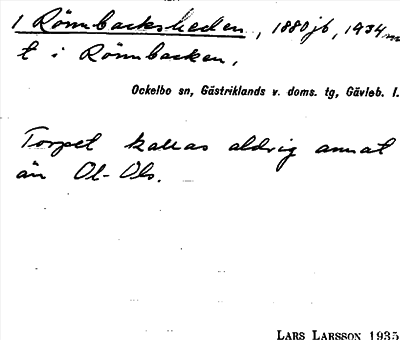 1 Rönnbacksheden, 1880 jb, 1934 m
t i Rönnbacken,
Ockelbo sn, Gästriklands v. doms. tg, Gävleb. l.
Torpet kallas aldrig annat
än Ol-Ols.
LARS LARSSON 1935